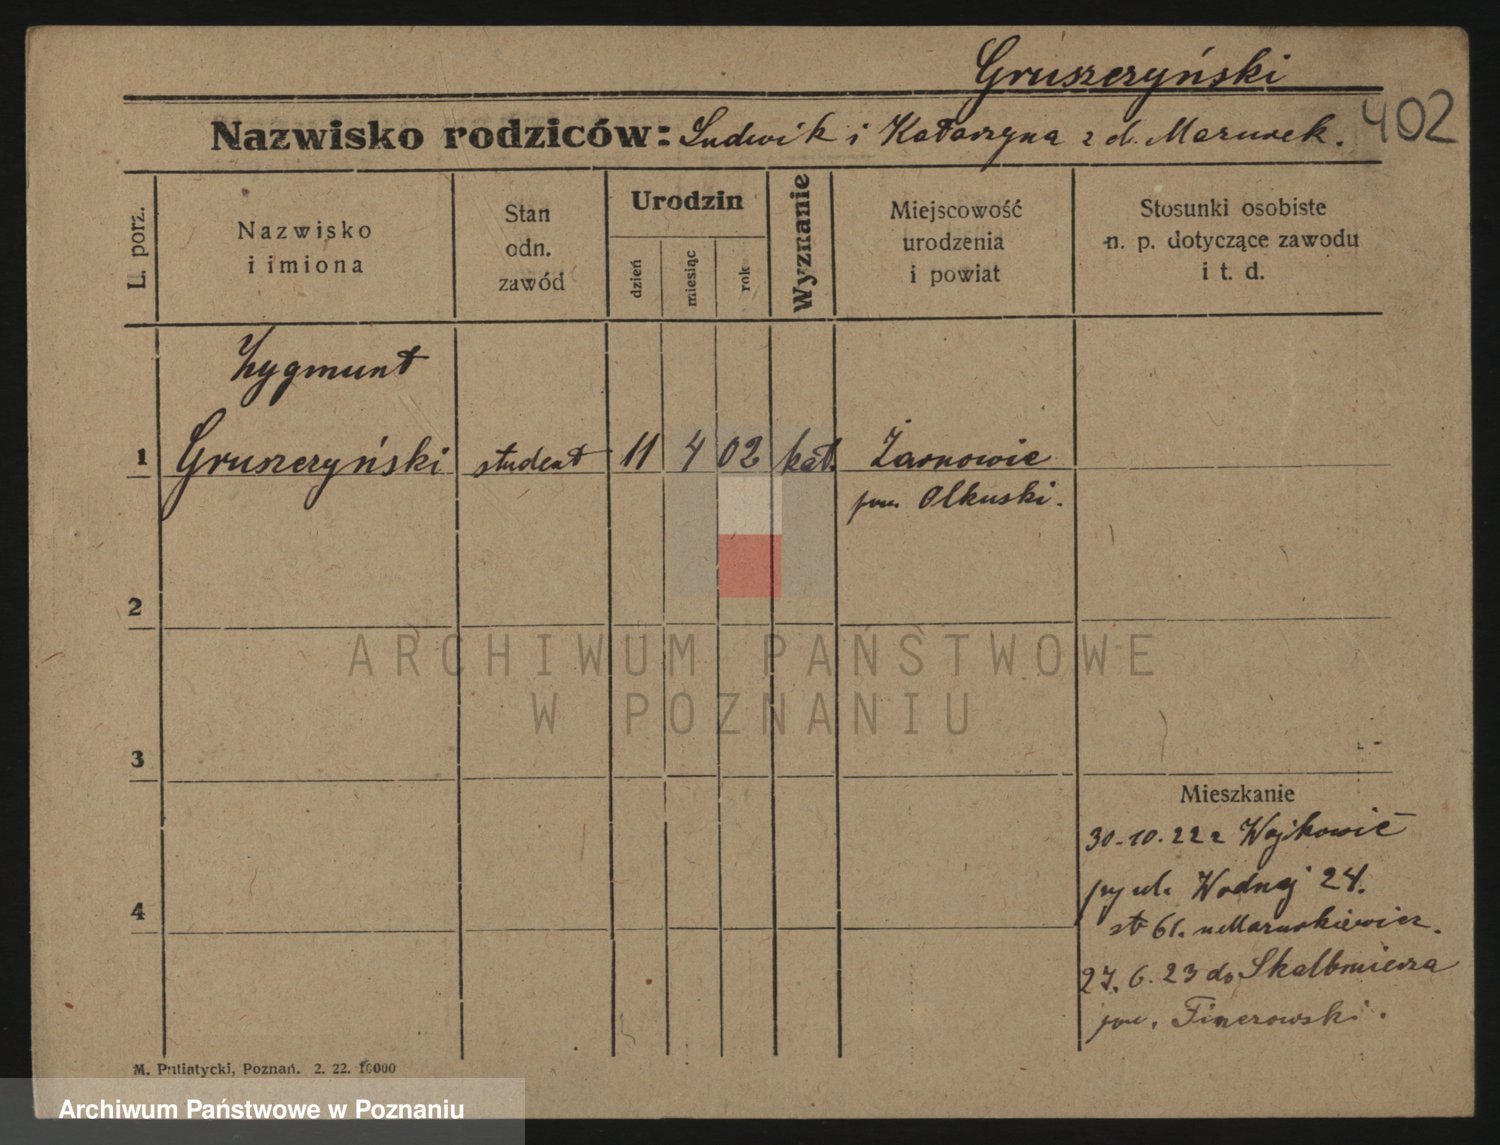 Gruszczyński
Nazwisko rodziców: Ludwik i Katarzyna z d. Mazurek.
402
L. porz.
Nazwisko
i imiona
Stan
odn.
zawód
Urodzin
dzień
miesiąc
rok
Wyznanie
Miejscowość
urodzenia
i powiat
Stosunki osobiste
n. p. dotyczące zawodu
i t. d.
Zygmunt
1 Gruszczyński student 11 4 02 kat. Żarnowiec
pow. Olkuski.
2
3
4
Mieszkanie
30.10.22 z Wojkowic
przy ul. Wodnej 24.
27.6.23 do Skalbmierza
pow. Pinczowski.
M. Putiatycki, Poznań. 2. 22. 10000
ARCHIWUM PAŃSTWOWE
W POZNANIU
Archiwum Państwowe w Poznaniu